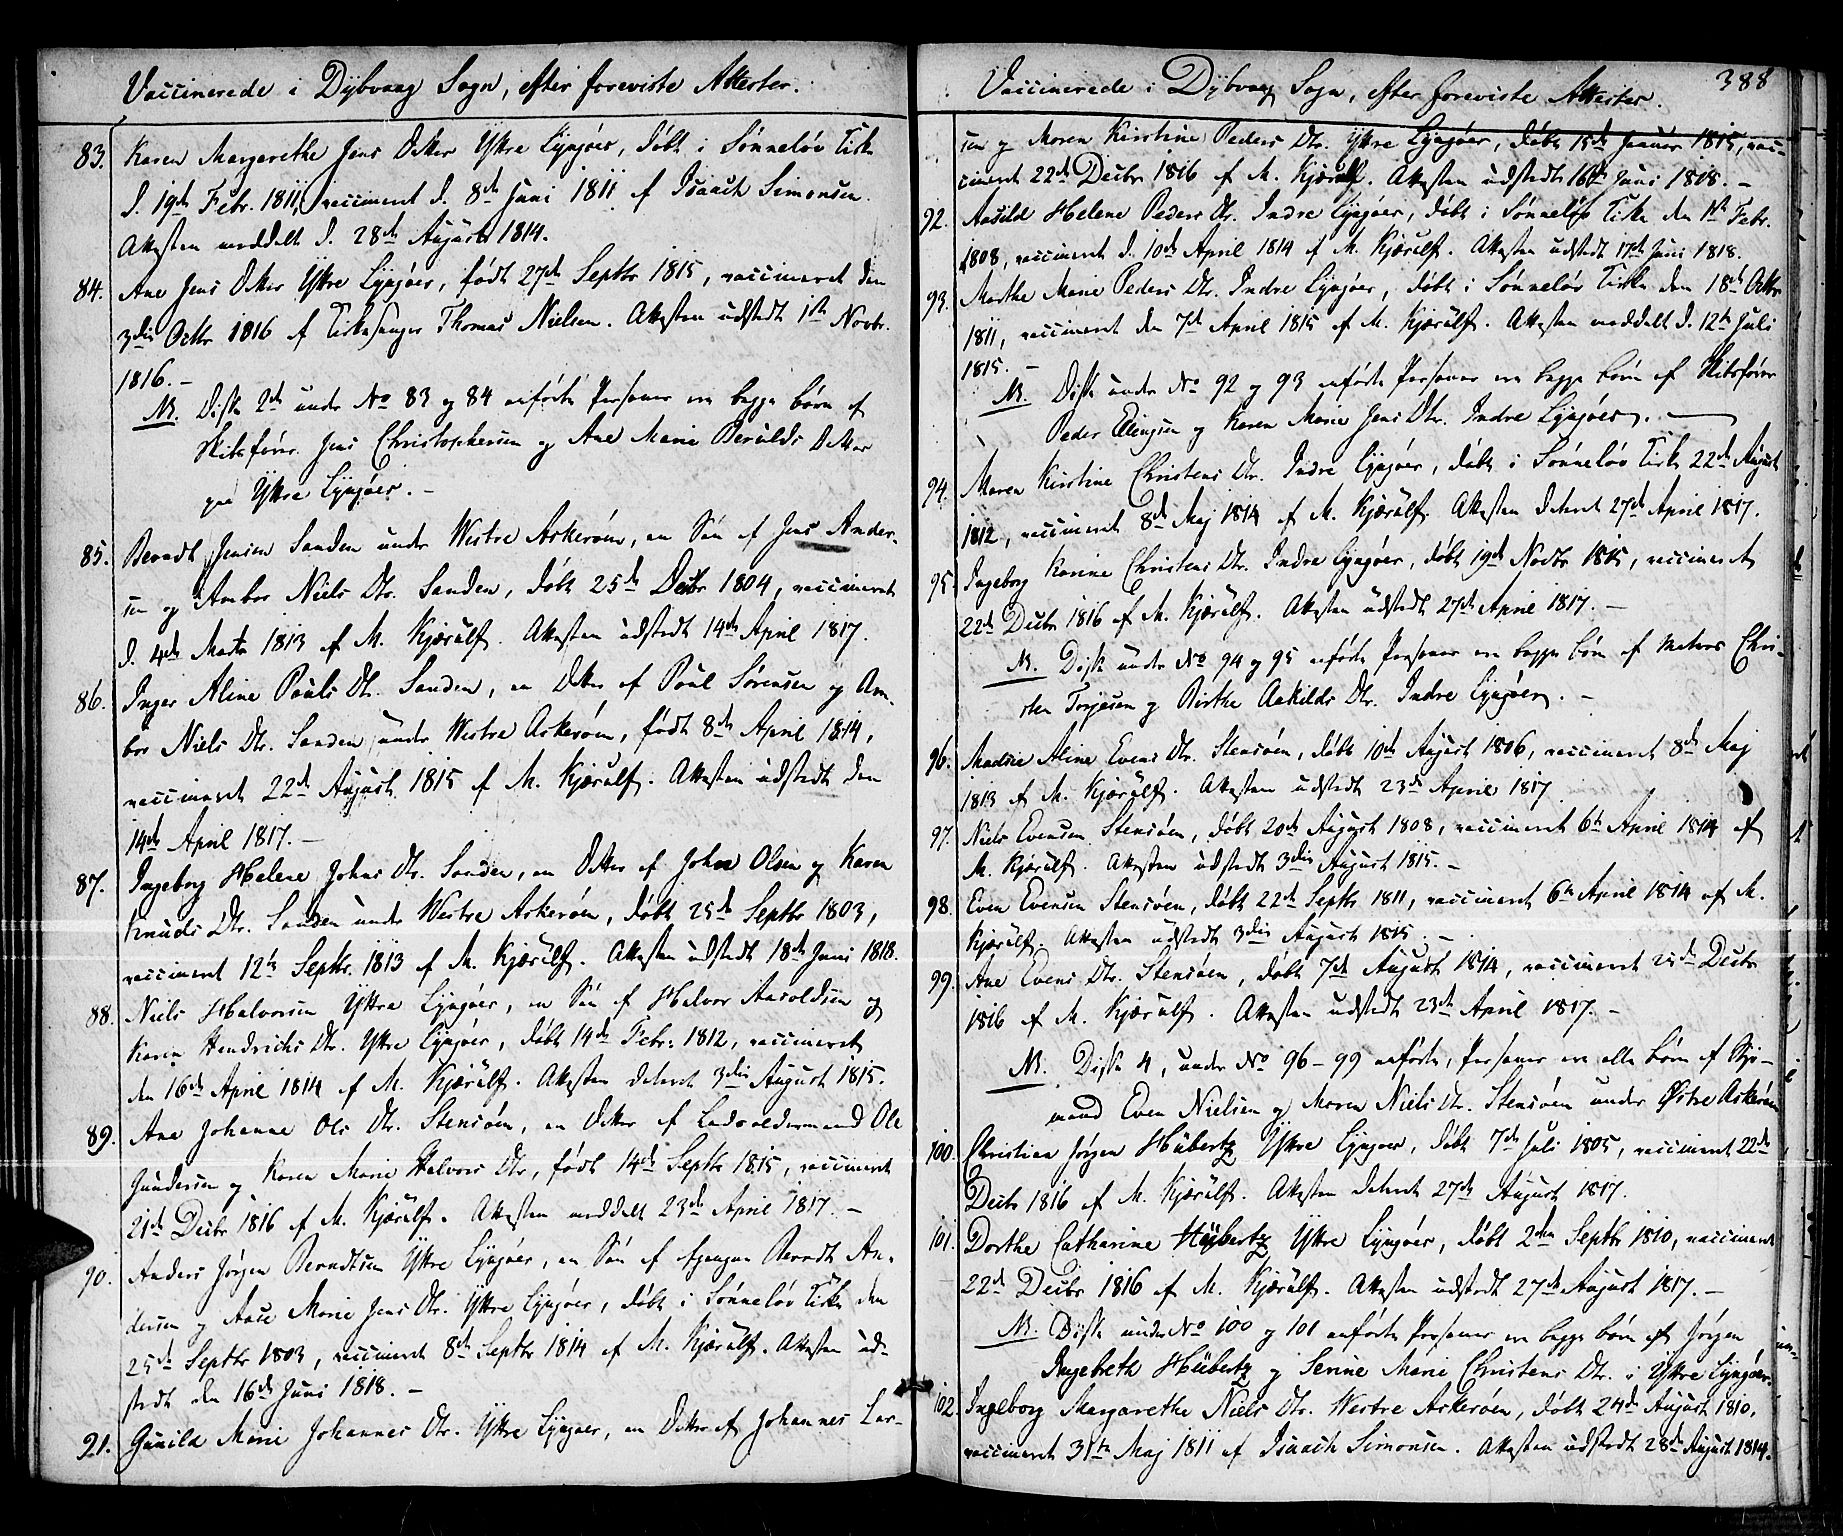 Vaccinerede i Dybvaag Sogn, efter foreviste Attester.
83. Karen Margarethe Jens Datter Yttre Lyngøer, døbt i Sønneløv Kirke
d. 19de Febr. 1811, vaccineret d. 8de Juni 1811 af Isaach Simonsen.
Attesten meddelt d. 28de August 1814.
84. Ane Jens Datter Yttre Lyngøer, født 27de Septbr 1815, vaccineret den
3die Octbr 1816 af Kirkesanger Thomas Nielsen. Attesten udstedt 1ste Novbr.
1816. –
NB. Disse 2de under No 83 og 84 anførte Personer ere begge børn af
Skibsfører Jens Christophersen og Ane Marie Beruldsdatter
paa Yttre Lyngøer. –
85. Berndt Jensen Sanden under Westre Askerøen, en Søn af Jens Ander-
sen og Anbor Niels Dtr. Sanden, døbt 25de Decbr 1804, vaccineret
d. 4de Marts 1813 af M. Kjærulf. Attesten udstedt 14de April 1817.
86. Inger Aline Pouls Dtr. Sanden, en Datter af Poul Sørensen og An-
bor Niels Dtr. Sanden under Westre Askerøen, født 8de April 1814,
vaccineret 22de August 1815 af M. Kjærulf. Attesten udstedt den
14de April 1817. –
87. Ingeborg Helene Johns Dtr. Sanden, en Datter af John Olsen og Karen
Knuds Dtr. Sanden under Westre Askerøen, døbt 25de Septbr 1803,
vaccineret 12te Septbr. 1813 af M. Kjærulf. Attesten udstedt 18de Juni 1818.
88. Niels Halvorsen Yttre Lyngøer, en Søn af Halvor Aaroldsen og
Karen Hendrichs Dtr. Yttre Lyngøer, døbt 14de Febr. 1812, vaccineret
den 16de April 1814 af M. Kjærulf. Attesten dateret 3die August 1815.
89. Ane Johanne Ols Dtr. Stensøen, en Datter af Ladsoldermand Ole
Gundersen og Karen Marie Halvors Dtr, født 14de Septbr 1815, vaccineret
21de Decbr 1816 af M. Kjærulf. Attesten meddelt 23de April 1817. –
90. Anders Jørgen Berndtsen Yttre Lyngøer, en Søn af Berndt An-
dersen og Aase Marie Jens Dtr. Yttre Lyngøer, døbt i Sønneløv Kirke den
25de Septbr 1803, vaccineret 8de Septbr 1814 af M. Kjærulf. Attesten ud-
stedt den 16de Juni 1818. –
91. Gunild Marie Johannes Dtr. Yttre Lyngøer, en Datter af Johannes Lar-
Vaccinerede i Dybvaag Sogn, efter foreviste Attester. 388
sen og Maren Kirstine Peders Dtr. Yttre Lyngøer, døbt 15de Januar 1815, vac-
cineret 22de Decbr 1816 af M. Kjærulf. Attesten udstedt 16de Juni 1818. –
92. Aasild Helene Peders Dtr. Indre Lyngøer, døbt i Sønneløv Kirke den 1ste Febr.
1808, vaccineret d. 10de April 1814 af M. Kjærulf. Attesten udstedt 17de Juni 1818.
93. Marthe Marie Peders Dtr. Indre Lyngøer, døbt i Sønneløv Kirke den 18de Octbr
1811, vaccineret den 7de April 1815 af M. Kjærulf. Attesten meddelt d. 12te Juli
1815. –
NB. Disse under No 92 og 93 anførte Personer ere begge børn af Skibsfører
Peder Ellingsen og Karen Marie Jens Dtr. Indre Lyngøer. –
94. Maren Kirstine Christens Dtr. Indre Lyngøer, døbt i Sønneløv Kirke 22de August
1812, vaccineret 8de Maj 1814 af M. Kjærulf. Attesten dateret 27de April 1817.
95. Ingeborg Karine Christens Dtr. Indre Lyngøer, døbt 19de Novbr 1815, vaccineret
22de Decbr 1816 af M. Kjærulf. Attesten udstedt 27de April 1817. –
NB. Disse under No 94 og 95 anførte Personer ere begge børn af Matros Chri-
sten Torjusen og Birthe Aaskilds Dtr. Indre Lyngøer. –
96. Aline Evens Dtr. Stensøen, døbt 10de August 1806, vaccineret 8de Maj
1813 af M. Kjærulf. Attesten udstedt 23de April 1817.
97. Niels Evensen Stensøen, døbt 20de August 1808, vaccineret 6te April 1814 af
M. Kjærulf. Attesten udstedt 3die August 1815. –
98. Even Evensen Stensøen, døbt 22de Septbr 1811, vaccineret 6te April 1814 af M.
Kjærulf. Attesten udstedt 3die August 1815. –
99. Ane Evens Dtr. Stensøen, døbt 7de August 1814, vaccineret 21de Decbr
1816 af M. Kjærulf. Attesten udstedt 23de April 1817. –
NB. Disse 4, under No 96–99 anførte, Personer ere alle børn af Sjø-
mand Even Nielsen og Maren Niels Dtr. Stensøen under Østre Askerøen
100. Christian Jørgen Hübertz Yttre Lyngøer, døbt 7de Juli 1805, vaccineret 22de
Decbr 1816 af M. Kjærulf. Attesten dateret 27de August 1817.
101. Dorthe Catharine Hübertz Yttre Lyngøer, døbt 2den Septbr 1810, vaccineret
22de Decbr 1816 af M. Kjærulf. Attesten udstedt 27de August 1817. –
NB. Disse under No 100 og 101 anførte Personer ere begge børn af Jørgen
Ingebreth Hübertz og Serine Marie Christens Dtr. i Yttre Lyngøer.
102. Ingeborg Margarethe Niels Dtr. Westre Askerøen, døbt 24de August 1810,
vaccineret 31te Maj 1811 af Isaach Simonsen. Attesten udstedt 28de August 1814.